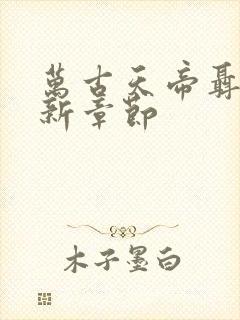 萬古天帝聶
新章節
木子墨白